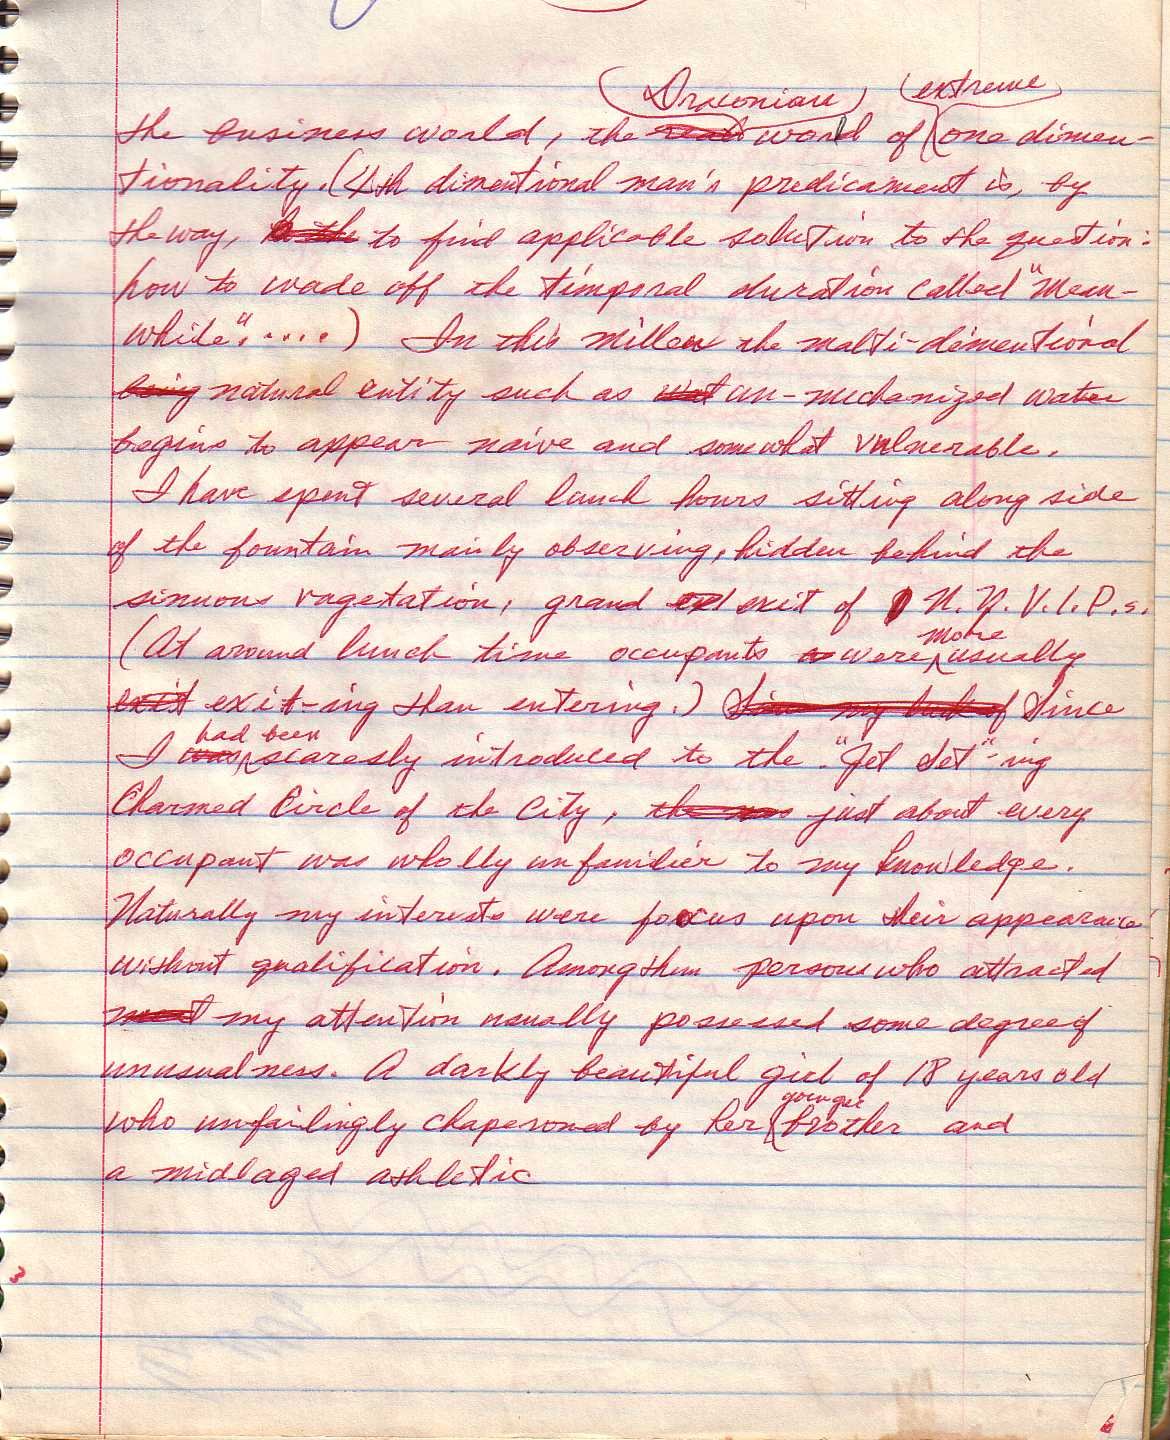 Draconian extreme
the business world, the world of one dimen-
tionality. (4th dimentional man's predicament is, by
the way, to find applicable solution to the question:
how to wade off the timporal duration called "Mean-
while". ....) In this milleu the malti-dimentional
being natural entity such as wat un-mechanized water
begins to appear naive and somewhat vulnerable.
I have spent several lunch hours sitting along side
of the fountain mainly observing, hidden behind the
sinuous vagetation, grand exit of N.Y.V.I.P.s.
more
(At around lunch time occupants were usually
exist exit-ing than entering.) Since my luck of Since
had been
I was scaresly introduced to the "Jet Set"-ing
Charmed Circle of the City, the was just about every
occupant was wholly unfamilier to my knowledge.
Naturally my interests were focus upon their appearance
without qualification. Among them persons who attracted
most my attention usually possessed some degree of
unusualness. A darkly beautiful girl of 18 years old
younger
who unfailingly chaperoned by her brother and
a midlaged athletic
3